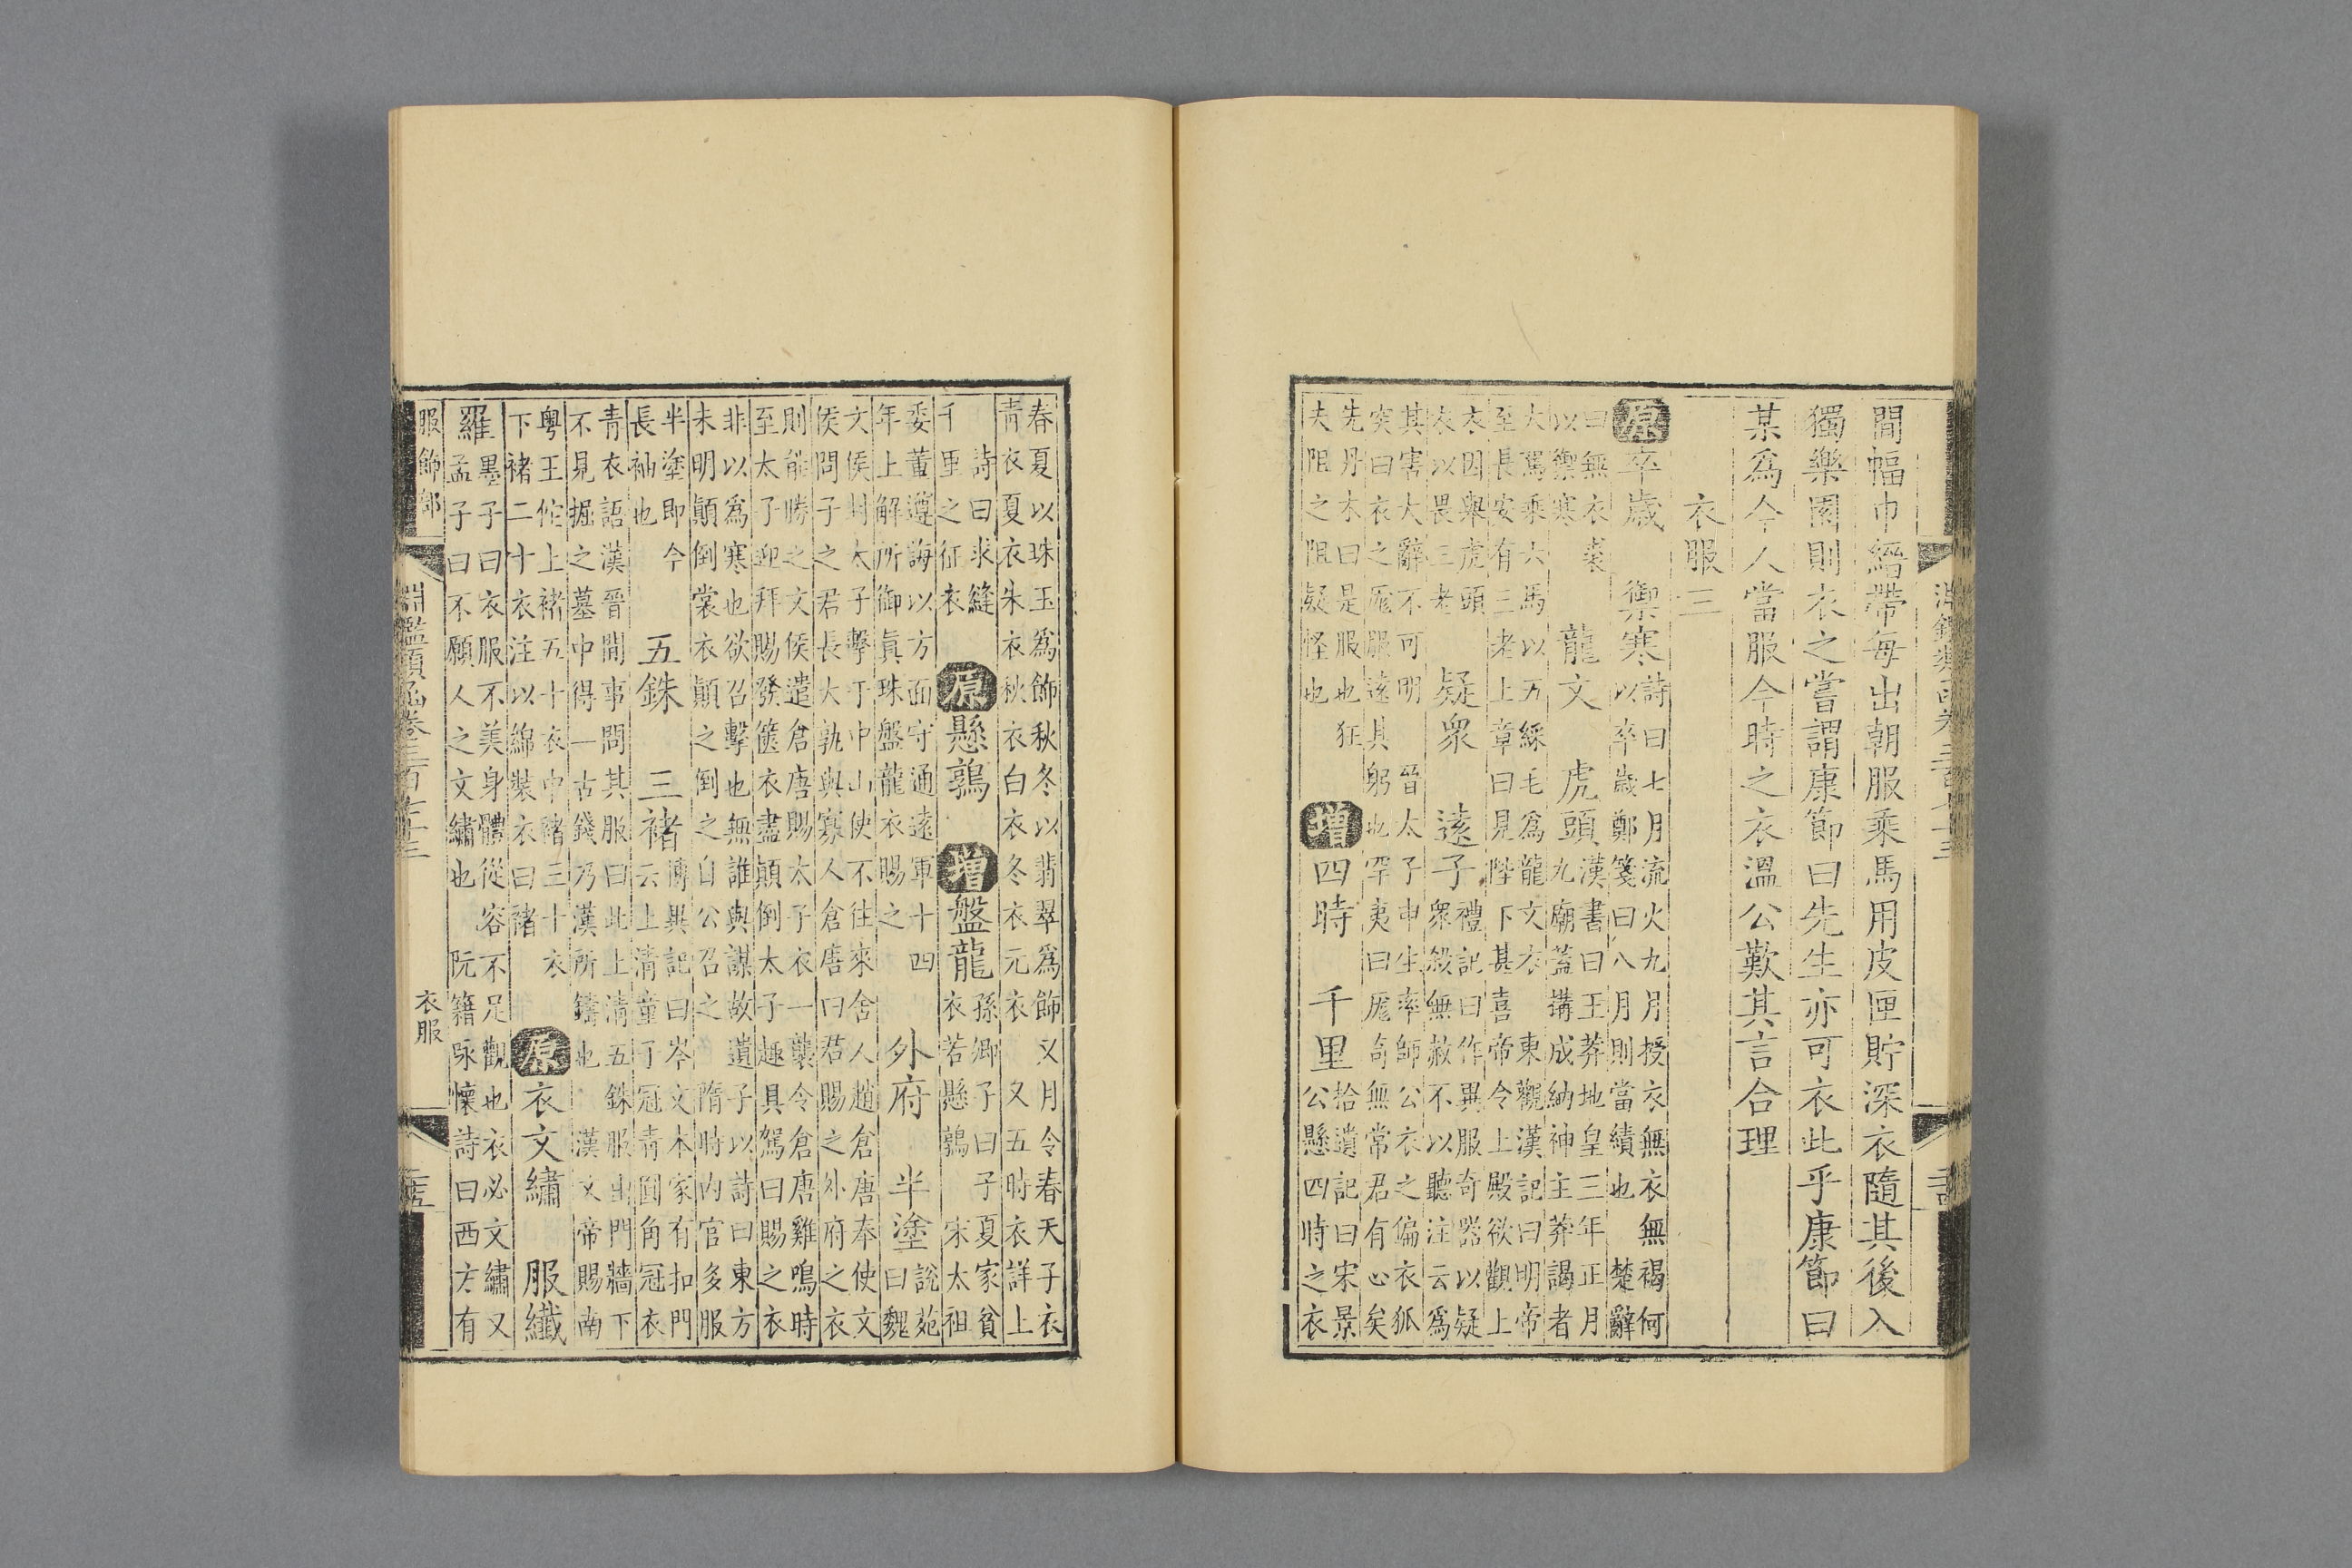 淵鑑類函卷三百七十三
間幅巾縉帶每出朝服乘馬用皮匣貯深衣隨其後入
獨樂園則衣之嘗謂康節曰先生亦可衣此乎康節曰
某爲今人當服今時之衣溫公歎其言合理
衣服三
原卒歲 禦寒
詩曰七月流火九月授衣無衣無褐何
以卒歲鄭箋曰八月則當績也 楚辭
曰無衣裘
以禦寒
龍文 虎頭
漢書曰王莽地皇三年正月
九廟蓋搆成納神主莽謁者
大駕乘六馬以五綵毛爲龍文衣 東觀漢記曰明帝
至長安有三老上章曰見陛下甚喜帝令上殿欲觀上
衣因舉虎頭
衣以畏三老
疑衆 遠子
禮記曰作異服奇器以疑
衆殺無赦不以聽注云爲
其害大辭不可明 晉太子申生率師公衣之偏衣狐
突曰衣之尨服遠其躬也罕夷曰尨奇無常君有心矣
先丹木曰是服也狂
夫阻之阻疑怪也
增四時 千里
拾遺記曰宋景
公懸四時之衣
春夏以珠玉爲飾秋冬以翡翠爲飾 又月令春天子衣
青衣夏衣朱衣秋衣白衣冬衣元衣 又五時衣詳上
詩曰裘縫
千里之征衣
原懸鶉 增盤龍
孫卿子曰子夏家貧
衣若懸鶉 宋太祖
委董遵誨以方面守通遠軍十四
年上解所御眞珠盤龍衣賜之
外府 半塗
說苑
曰魏
文侯封太子擊于中山使不往來舍人趙倉唐奉使文
侯問子之君長大孰與寡人倉唐曰君賜之外府之衣
則能勝之文侯遣倉唐賜太子衣一襲令倉唐雞鳴時
至太子迎拜賜發篋衣盡顛倒太子趣具駕曰賜之衣
非以爲寒也欲召擊也無誰與謀故遺子以詩曰東方
未明顛倒裳衣顛之倒之自公召之 隋時內官多服
半塗即今
長袖也
五銖 三褚
博異記曰岑文本家有扣門
云上清童子冠青圓角冠衣
青衣語漢晉間事問其服曰此上清五銖服出門牆下
不見掘之墓中得一古錢乃漢所鑄也 漢文帝賜南
粵王佗上褚五十衣中褚三十衣
下褚二十衣注以綿裝衣曰褚
原衣文繡 服纖
羅
墨子曰衣服不美身體從容不足觀也衣必文繡又
孟子曰不願人之文繡也 阮籍詠懷詩曰西方有
服飾部 衣服
淵鑑類函卷三百七十三